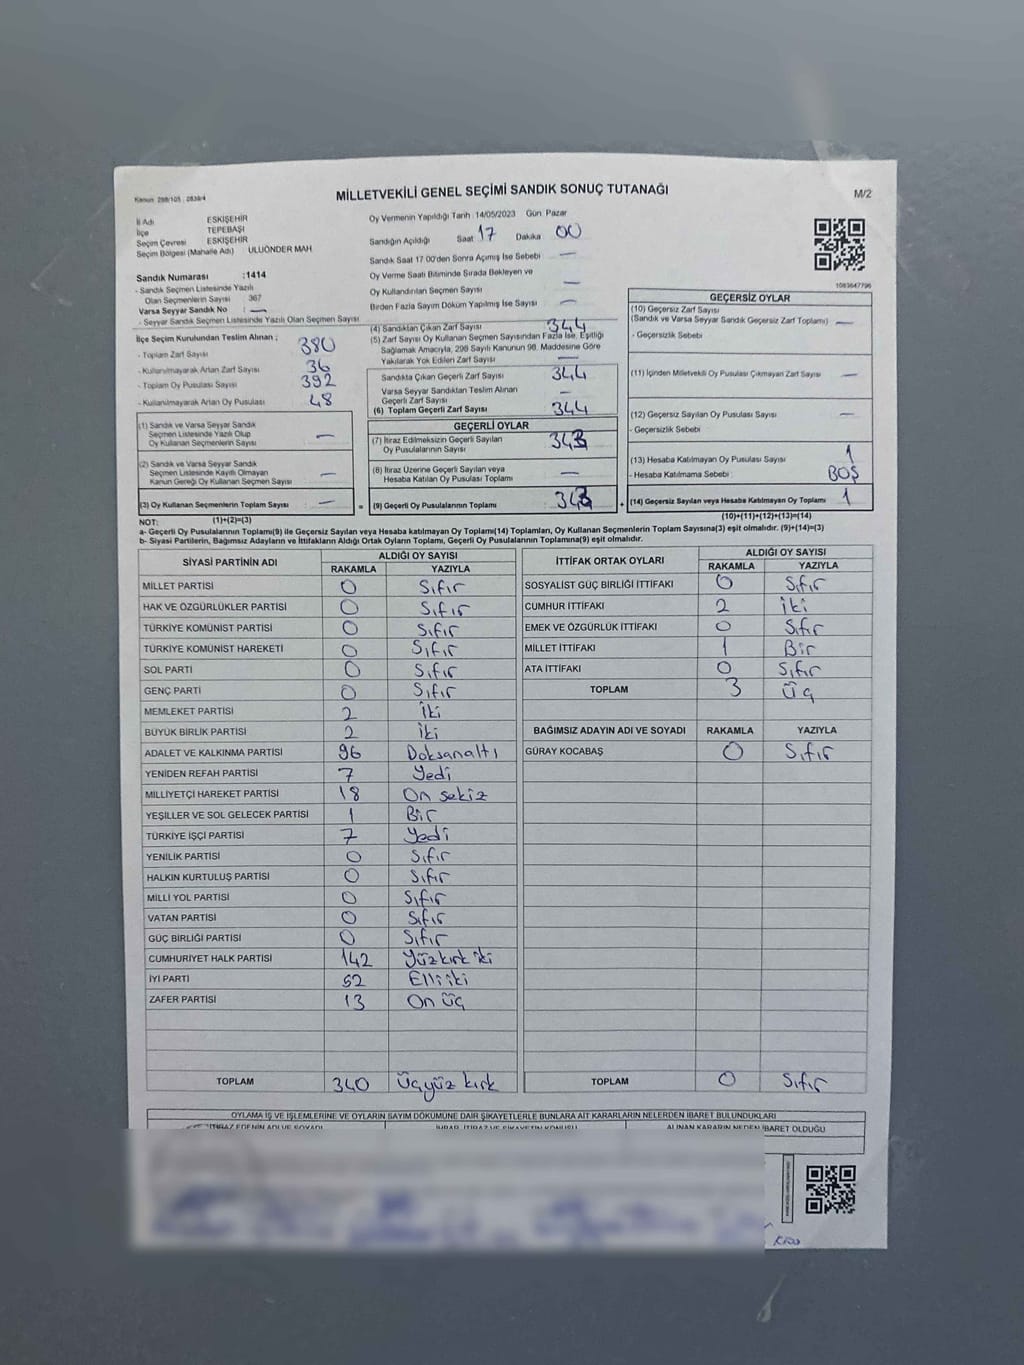 Kanun: 298/105 : 2839/4
MİLLETVEKİLİ GENEL SEÇİMİ SANDIK SONUÇ TUTANAĞI
M/2
İl Adı ESKİŞEHİR
İlçe TEPEBAŞI
Seçim Çevresi ESKİŞEHİR
Seçim Bölgesi (Mahalle Adı) ULUÖNDER MAH
Oy Vermenin Yapıldığı Tarih : 14/05/2023 Gün: Pazar
Sandığın Açıldığı Saat 17 Dakika 00
Sandık Saat 17 00'den Sonra Açımış İse Sebebi —
Oy Verme Saati Bitiminde Sırada Bekleyen ve
Oy Kullandırılan Seçmen Sayısı —
Birden Fazla Sayım Döküm Yapılmış İse Sayısı —
1083647796
Sandık Numarası :1414
- Sandık Seçmen Listesinde Yazılı
Olan Seçmenlerin Sayısı 367
Varsa Seyyar Sandık No —
- Seyyar Sandık Seçmen Listesinde Yazılı Olan Seçmen Sayısı
İlçe Seçim Kurulundan Teslim Alınan ;
- Toplam Zarf Sayısı 380
- Kullanılmayarak Artan Zarf Sayısı 36
- Toplam Oy Pusulası Sayısı 392
- Kullanılmayarak Artan Oy Pusulası 48
(1) Sandık ve Varsa Seyyar Sandık
Seçmen Listesinde Yazılı Olup
Oy Kullanan Seçmenlerin Sayısı —
(2) Sandık ve Varsa Seyyar Sandık
Seçmen Listesinde Kayıtlı Olmayan
Kanun Gereği Oy Kullanan Seçmen Sayısı —
(3) Oy Kullanan Seçmenlerin Toplam Sayısı —
(1)+(2)=(3)
(4) Sandıktan Çıkan Zarf Sayısı 344
(5) Zarf Sayısı Oy Kullanan Seçmen Sayısından Fazla İse, Eşitliği
Sağlamak Amacıyla, 298 Sayılı Kanunun 98. Maddesine Göre
Yakılarak Yok Edilen Zarf Sayısı —
Sandıkta Çıkan Geçerli Zarf Sayısı 344
Varsa Seyyar Sandıktan Teslim Alınan
Geçerli Zarf Sayısı —
(6) Toplam Geçerli Zarf Sayısı 344
GEÇERLİ OYLAR
(7) İtiraz Edilmeksizin Geçerli Sayılan
Oy Pusulalarının Sayısı 343
(8) İtiraz Üzerine Geçerli Sayılan veya
Hesaba Katılan Oy Pusulası Toplamı —
= (9) Geçerli Oy Pusulalarının Toplamı 343 +
GEÇERSİZ OYLAR
(10) Geçersiz Zarf Sayısı
(Sandık ve Varsa Seyyar Sandık Geçersiz Zarf Toplamı) —
- Geçersizlik Sebebi
(11) İçinden Milletvekili Oy Pusulası Çıkmayan Zarf Sayısı —
(12) Geçersiz Sayılan Oy Pusulası Sayısı —
- Geçersizlik Sebebi
(13) Hesaba Katılmayan Oy Pusulası Sayısı 1
- Hesaba Katılmama Sebebi : BOŞ
(14) Geçersiz Sayılan veya Hesaba Katılmayan Oy Toplamı 1
(10)+(11)+(12)+(13)=(14)
NOT:
a- Geçerli Oy Pusulalarının Toplamı(9) ile Geçersiz Sayılan veya Hesaba katılmayan Oy Toplamı(14) Toplamları, Oy Kullanan Seçmenlerin Toplam Sayısına(3) eşit olmalıdır. (9)+(14)=(3)
b- Siyasi Partilerin, Bağımsız Adayların ve İttifakların Aldığı Ortak Oyların Toplamı, Geçerli Oy Pusulalarının Toplamına(9) eşit olmalıdır.
SİYASİ PARTİNİN ADI ALDIĞI OY SAYISI
RAKAMLA YAZIYLA
MİLLET PARTİSİ 0 Sıfır
HAK VE ÖZGÜRLÜKLER PARTİSİ 0 Sıfır
TÜRKİYE KOMÜNİST PARTİSİ 0 Sıfır
TÜRKİYE KOMÜNİST HAREKETİ 0 Sıfır
SOL PARTİ 0 Sıfır
GENÇ PARTİ 0 Sıfır
MEMLEKET PARTİSİ 2 İki
BÜYÜK BİRLİK PARTİSİ 2 İki
ADALET VE KALKINMA PARTİSİ 96 Doksanaltı
YENİDEN REFAH PARTİSİ 7 Yedi
MİLLİYETÇİ HAREKET PARTİSİ 18 On sekiz
YEŞİLLER VE SOL GELECEK PARTİSİ 1 Bir
TÜRKİYE İŞÇİ PARTİSİ 7 Yedi
YENİLİK PARTİSİ 0 Sıfır
HALKIN KURTULUŞ PARTİSİ 0 Sıfır
MİLLİ YOL PARTİSİ 0 Sıfır
VATAN PARTİSİ 0 Sıfır
GÜÇ BİRLİĞİ PARTİSİ 0 Sıfır
CUMHURİYET HALK PARTİSİ 142 Yüzkırk iki
İYİ PARTİ 52 Elli iki
ZAFER PARTİSİ 13 On üç
TOPLAM 340 Üçyüz kırk
İTTİFAK ORTAK OYLARI ALDIĞI OY SAYISI
RAKAMLA YAZIYLA
SOSYALİST GÜÇ BİRLİĞİ İTTİFAKI 0 Sıfır
CUMHUR İTTİFAKI 2 İki
EMEK VE ÖZGÜRLÜK İTTİFAKI 0 Sıfır
MİLLET İTTİFAKI 1 Bir
ATA İTTİFAKI 0 Sıfır
TOPLAM 3 Üç
BAĞIMSIZ ADAYIN ADI VE SOYADI RAKAMLA YAZIYLA
GÜRAY KOCABAŞ 0 Sıfır
TOPLAM 0 Sıfır
OYLAMA İŞ VE İŞLEMLERİNE VE OYLARIN SAYIM DÖKÜMÜNE DAİR ŞİKAYETLERLE BUNLARA AİT KARARLARIN NELERDEN İBARET BULUNDUKLARI
İTİRAZ EDENİN ADI VE SOYADI ALINAN KARARIN NEDEN İBARET OLDUĞU